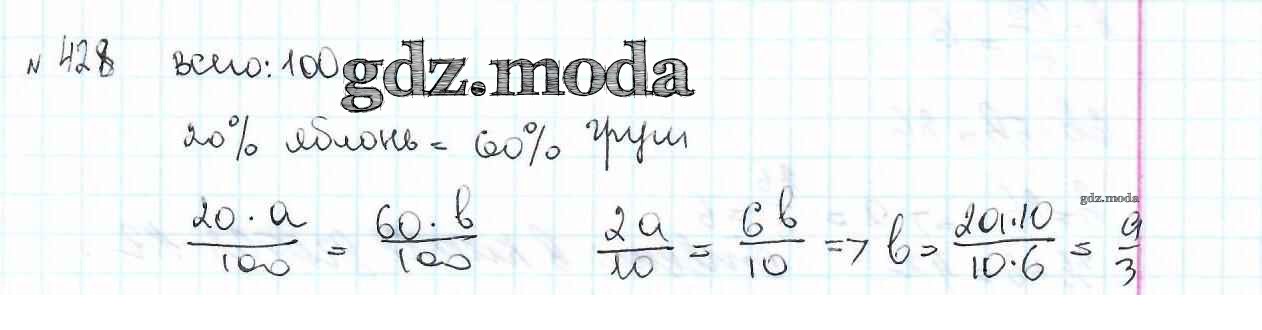 № 428 всего: 100
gdz.moda
20% яблонь = 60% груш
gdz.moda
20·a/100 = 60·b/100 2a/10 = 6b/10 => b = 2a·10/10·6 = a/3